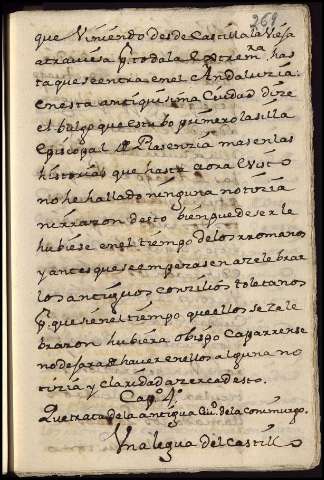 269
que Viniendo desde Castilla la Vieja
atraviesa p. toda la Extrem.ra has
ta que se entra en el Andaluzia:
en esta antiquisima Ciudad dize
el bulgo que estubo primero la silla
Episcopal de Plasenzia mas en las
historias que hasta aora e visto
no he hallado ninguna notizia
ni rrazon desto bien puede ser le
hubiese en el tiempo de los rromanos
y antes que se empezasen a zelebrar
los antiguos conzilios toletanos
p. que si en el tiempo que ellos se zele
braron hubiera obispo Caparrense
no dejara de haver en ellos alguna no
tizia y claridad azerca desto.
Cap.o 4.o
Que trata de la antigua Ciu.d de la Commurgo.
Una legua del Castillo